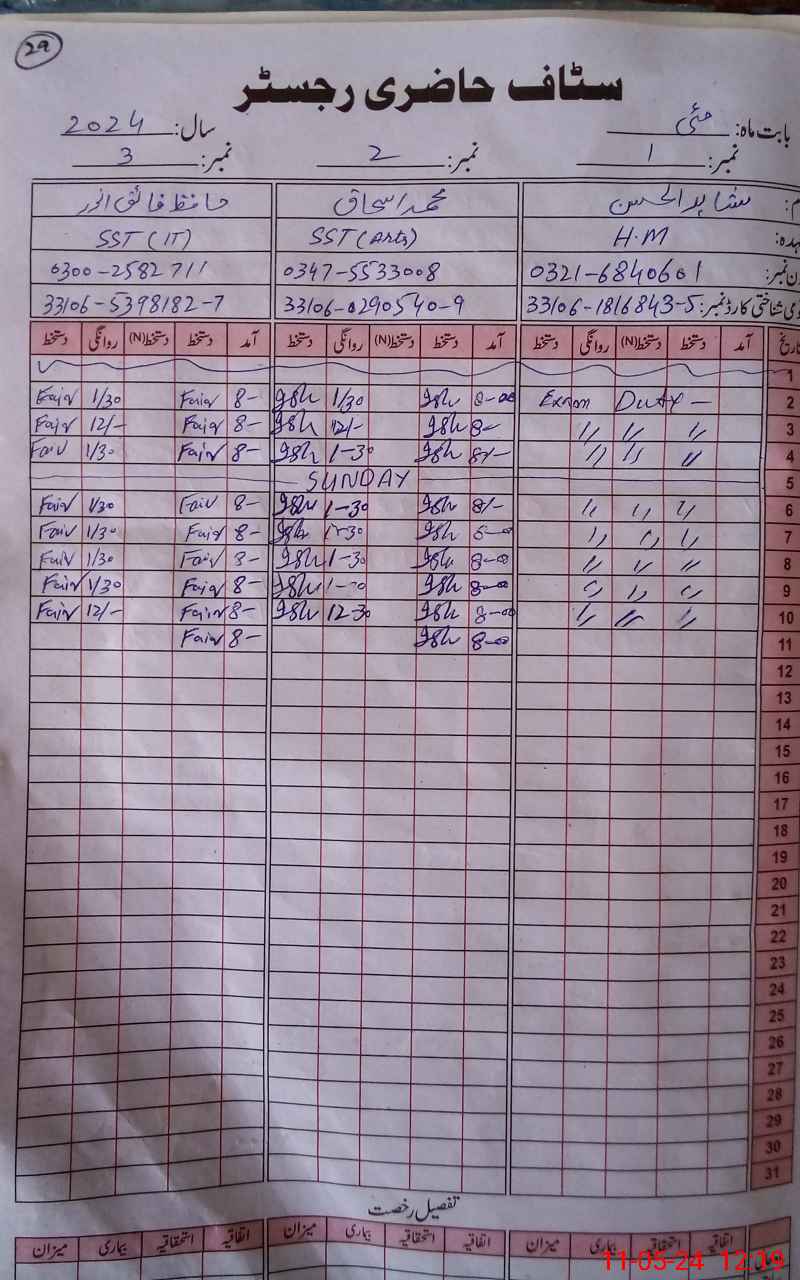 29
سٹاف حاضری رجسٹر
بابت ماہ: مئی سال: 2024
نمبر: 1 نمبر: 2 نمبر: 3
م: شاہد الحسن محمد اسحاق حافظ فائق انور
ہدہ: H.M SST (Arts) SST (IT)
ن نمبر: 0321-6840601 0347-5533008 0300-2582711
می شناختی کارڈ نمبر: 33106-1816843-5 33106-0290540-9 33106-5398182-7
تاریخ آمد دستخط دستخط(N) روانگی دستخط آمد دستخط دستخط(N) روانگی دستخط آمد دستخط دستخط(N) روانگی دستخط
1
Fair 1/30 Fair 8- Ish 1/30 Ish 8-00 Exam Duty - 2
Fair 12/- Fair 8- Ish 12/- Ish 8- 〃 〃 〃 3
Fair 1/30 Fair 8- Ish 1-30 Ish 8/- 〃 〃 〃 4
SUNDAY 5
Fair 1/30 Fair 8- Ish 1-30 Ish 8/- 〃 〃 〃 6
Fair 1/30 Fair 8- Ish 1-30 Ish 8-00 〃 〃 〃 7
Fair 1/30 Fair 8- Ish 1-30 Ish 8-00 〃 〃 〃 8
Fair 1/30 Fair 8- Ish Ish 8-00 〃 〃 〃 9
Fair 12/- Fair 8- Ish 12-30 Ish 8-00 〃 〃 〃 10
Fair 8- Ish 8-00 11
12
13
14
15
16
17
18
19
20
21
22
23
24
25
26
27
28
29
30
31
تفصیل رخصت
اتفاقیہ استحقاقیہ بیماری میزان اتفاقیہ استحقاقیہ بیماری میزان اتفاقیہ استحقاقیہ بیماری میزان
11-05-24 12:19